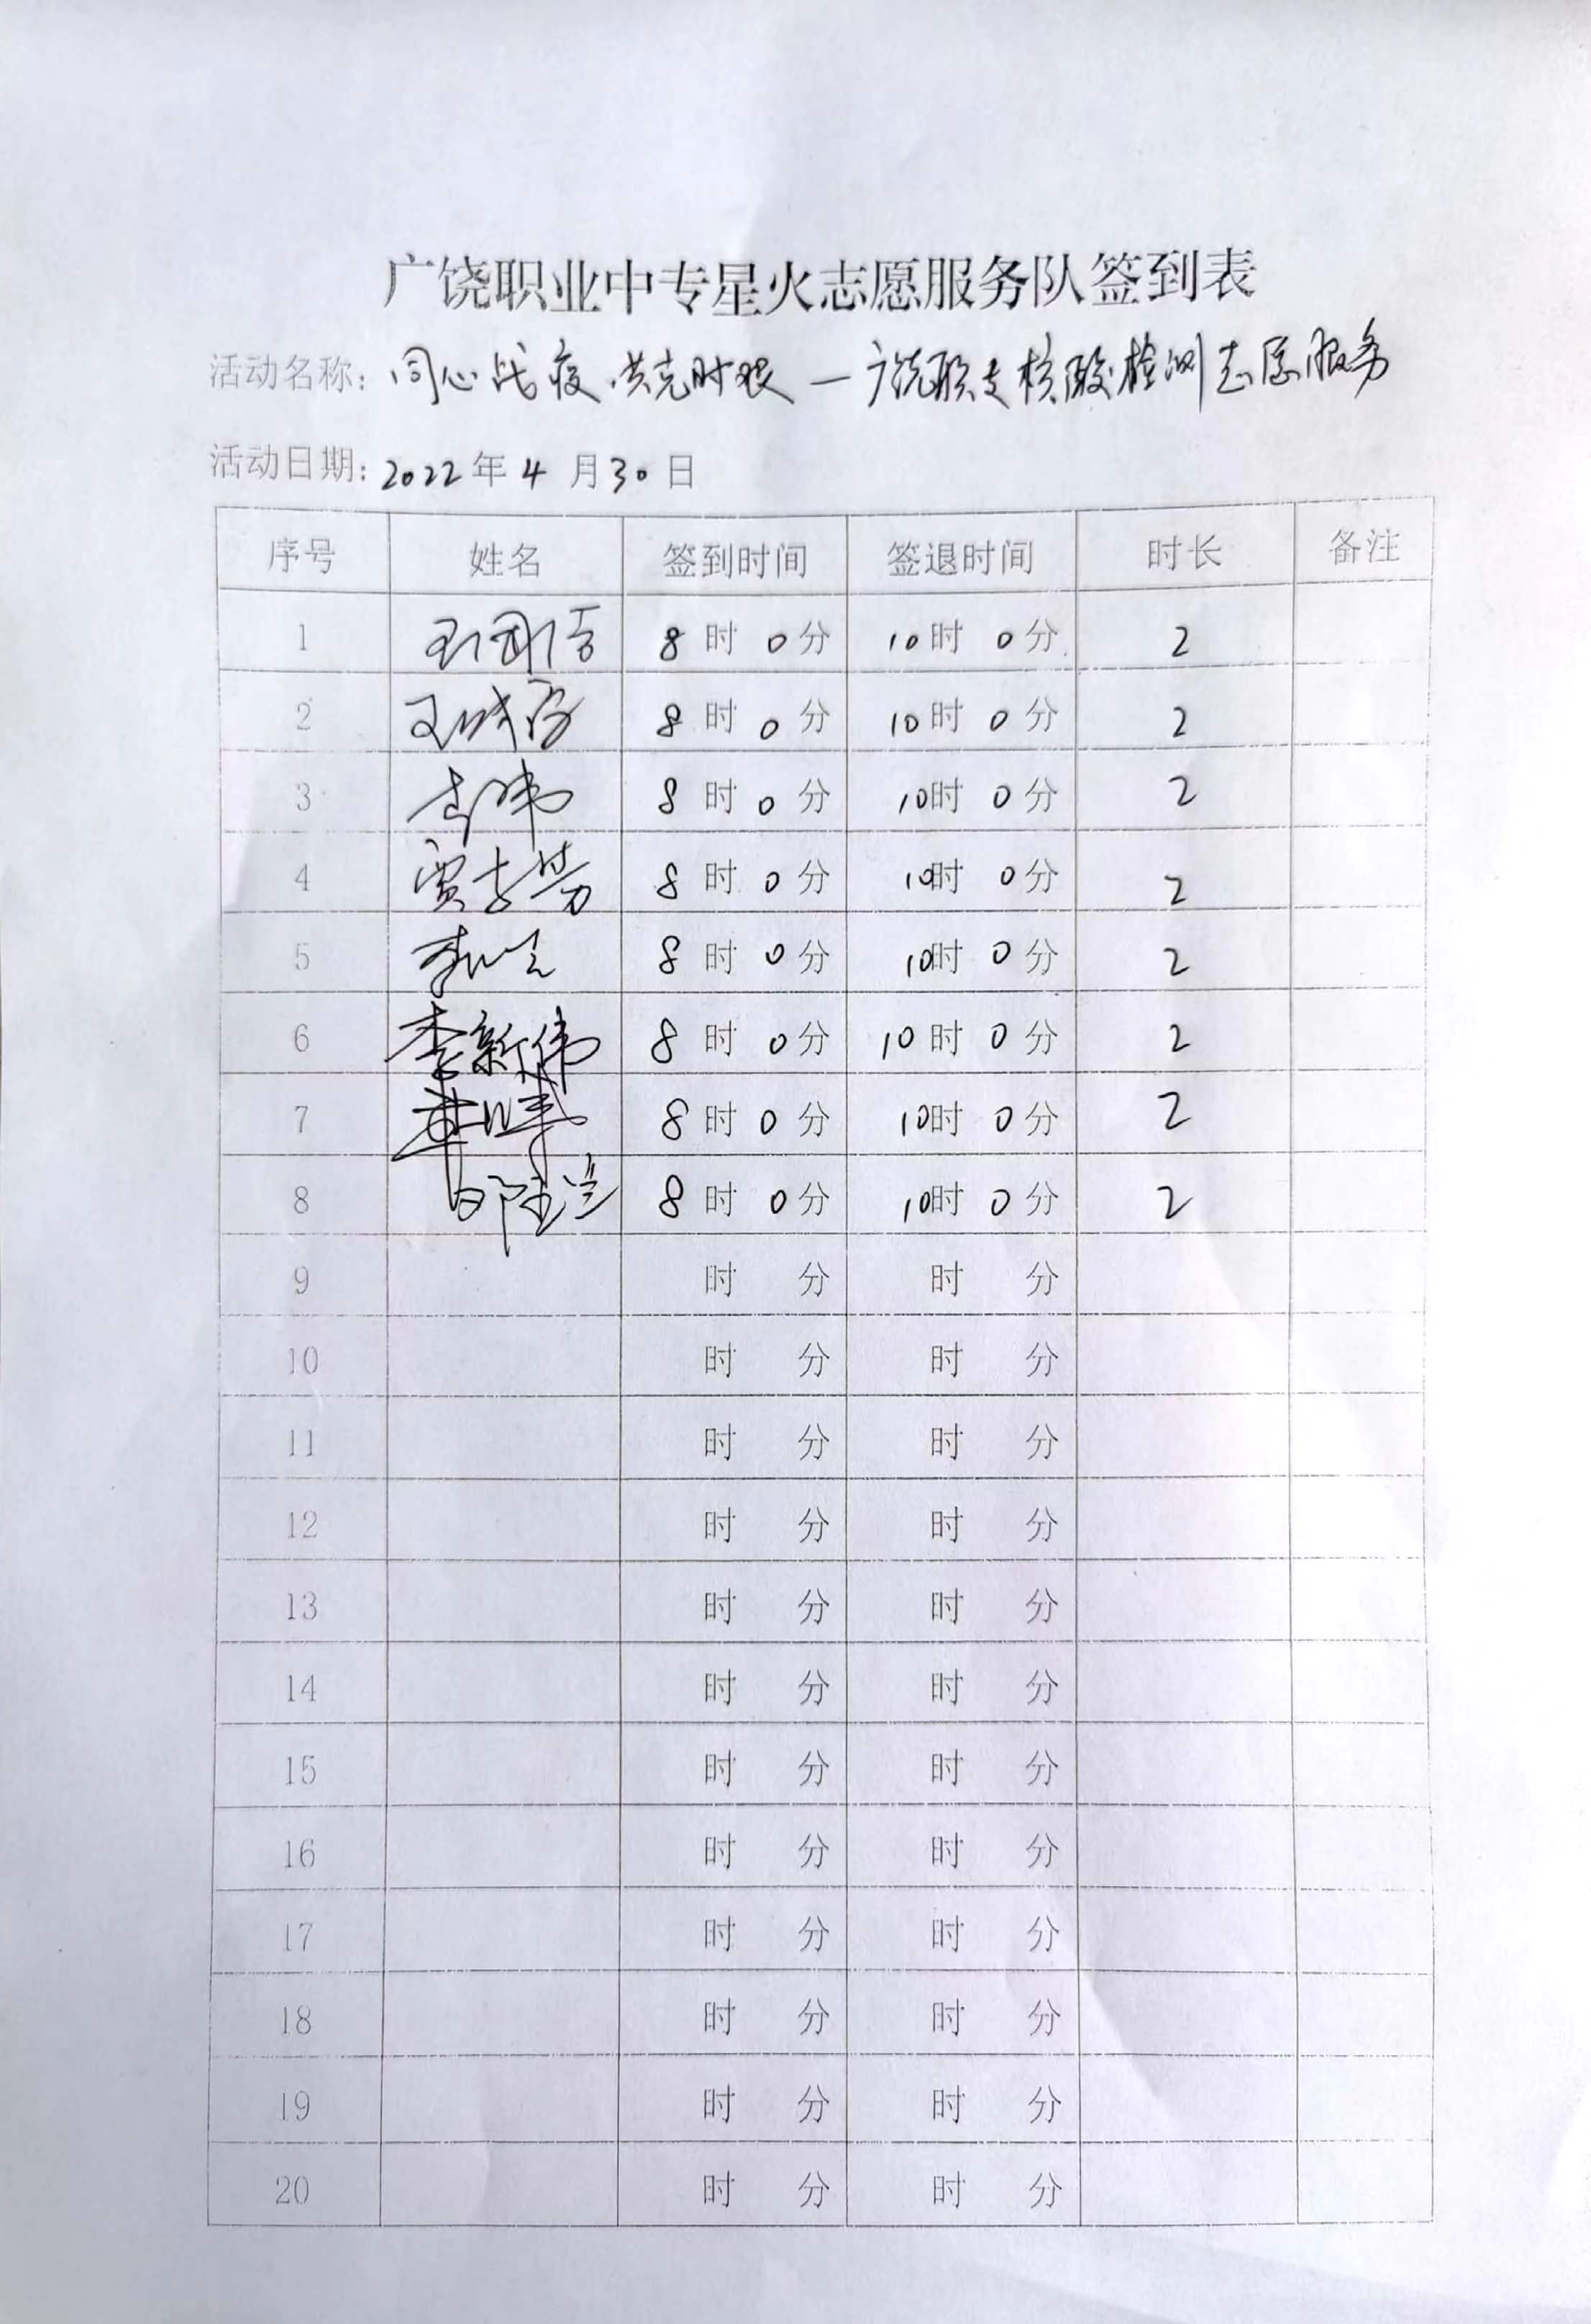 广饶职业中专星火志愿服务队签到表
活动名称：同心战疫，共克时艰—广饶职专核酸检测志愿服务
活动日期：2022年4月30日
序号 姓名 签到时间 签退时间 时长 备注
1 8时0分 10时0分 2
2 8时0分 10时0分 2
3 8时0分 10时0分 2
4 8时0分 10时0分 2
5 8时0分 10时0分 2
6 李新伟 8时0分 10时0分 2
7 8时0分 10时0分 2
8 8时0分 10时0分 2
9 时 分 时 分
10 时 分 时 分
11 时 分 时 分
12 时 分 时 分
13 时 分 时 分
14 时 分 时 分
15 时 分 时 分
16 时 分 时 分
17 时 分 时 分
18 时 分 时 分
19 时 分 时 分
20 时 分 时 分